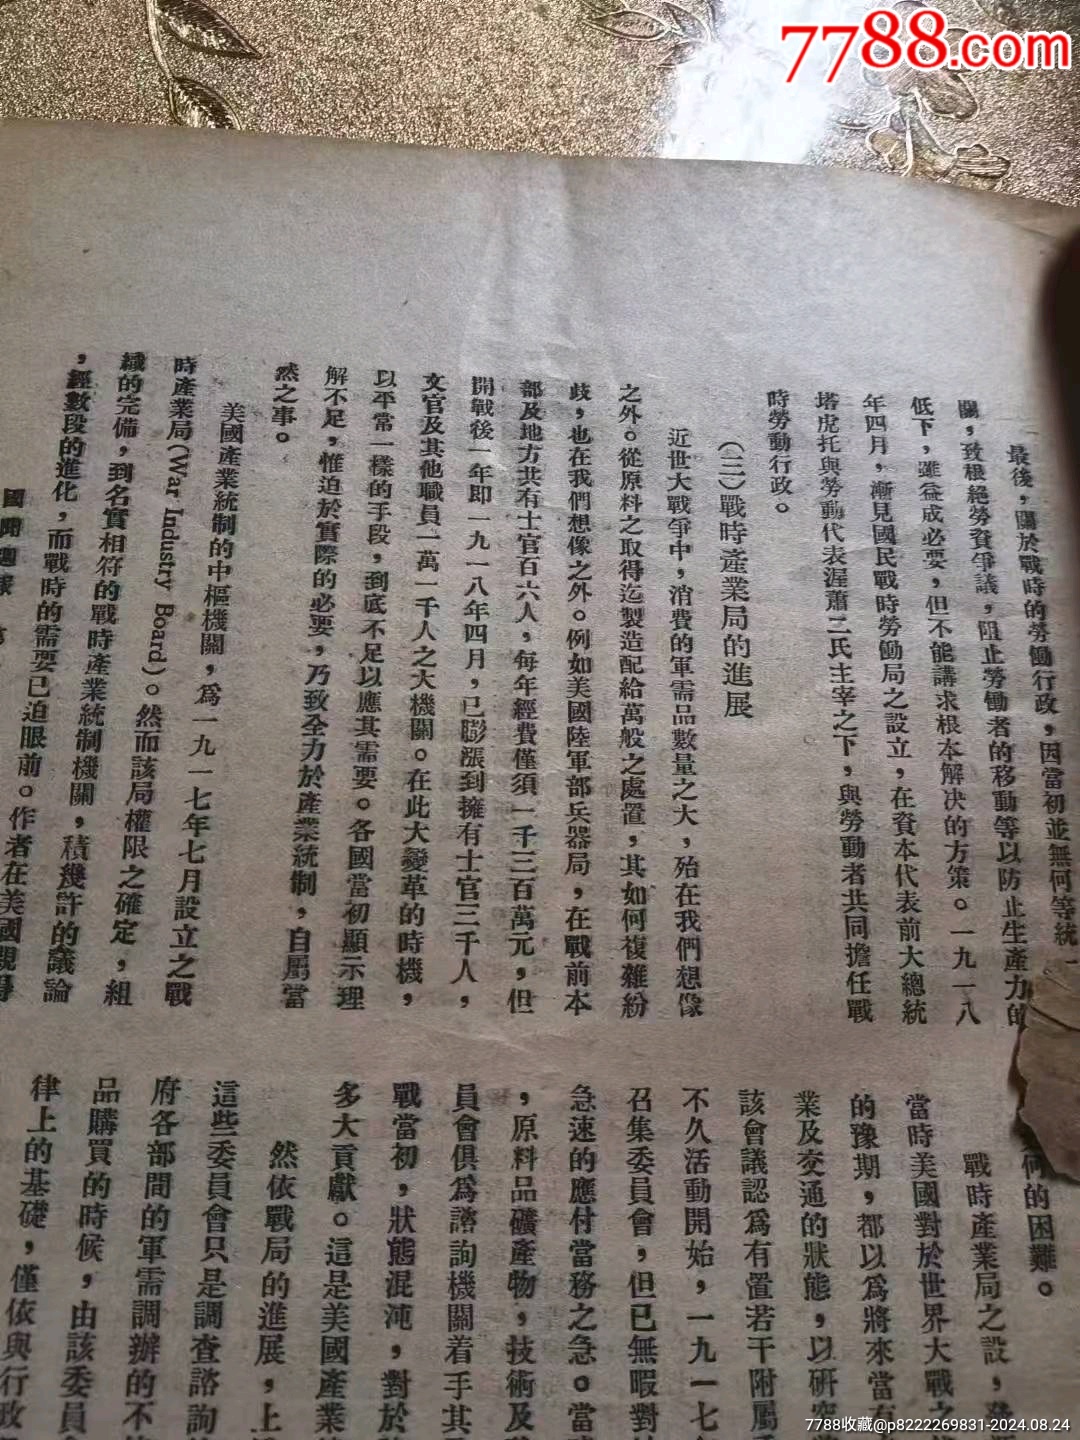 7788.com
最後，關於戰時的勞働行政，因當初並無何等統一
關，致根絕勞資爭議，阻止勞働者的移動等以防止生產力的
低下，雖益成必要，但不能講求根本解決的方策。一九一八
年四月，漸見國民戰時勞働局之設立，在資本代表前大總統
塔虎托與勞動代表渥蕭二氏主宰之下，與勞動者共同擔任戰
時勞動行政。
(三)戰時產業局的進展
近世大戰爭中，消費的軍需品數量之大，殆在我們想像
之外。從原料之取得迄製造配給萬般之處置，其如何複雜紛
歧，也在我們想像之外。例如美國陸軍部兵器局，在戰前本
部及地方共有士官百六人，每年經費僅須一千三百萬元，但
開戰後一年即一九一八年四月，已膨漲到擁有士官三千人，
文官及其他職員一萬一千人之大機關。在此大變革的時機，
以平常一樣的手段，到底不足以應其需要。各國當初顯示理
解不足，惟迫於實際的必要，乃致全力於產業統制，自屬當
然之事。
美國產業統制的中樞機關，為一九一七年七月設立之戰
時產業局(War Industry Board)。然而該局權限之確定，組
織的完備，到名實相符的戰時產業統制機關，積幾許的議論
，經數段的進化，而戰時的需要已迫眼前。作者在美國親得
國聞週報
何的困難。
戰時產業局之設，
當時美國對於世界大戰之
的豫期，都以為將來當有
業及交通的狀態，以研究
該會議認為有置若干附屬
不久活動開始，一九一七
召集委員會，但已無暇對
急速的應付當務之急。當
，原料品礦產物，技術及
員會俱為諮詢機關着手其
戰當初，狀態混沌，對於
多大貢獻。這是美國產業
然依戰局的進展，上
這些委員會只是調查諮詢
府各部間的軍需調辦的不
品購買的時候，由該委員
律上的基礎，僅依與行政
7788收藏@p8222269831-2024.08.24